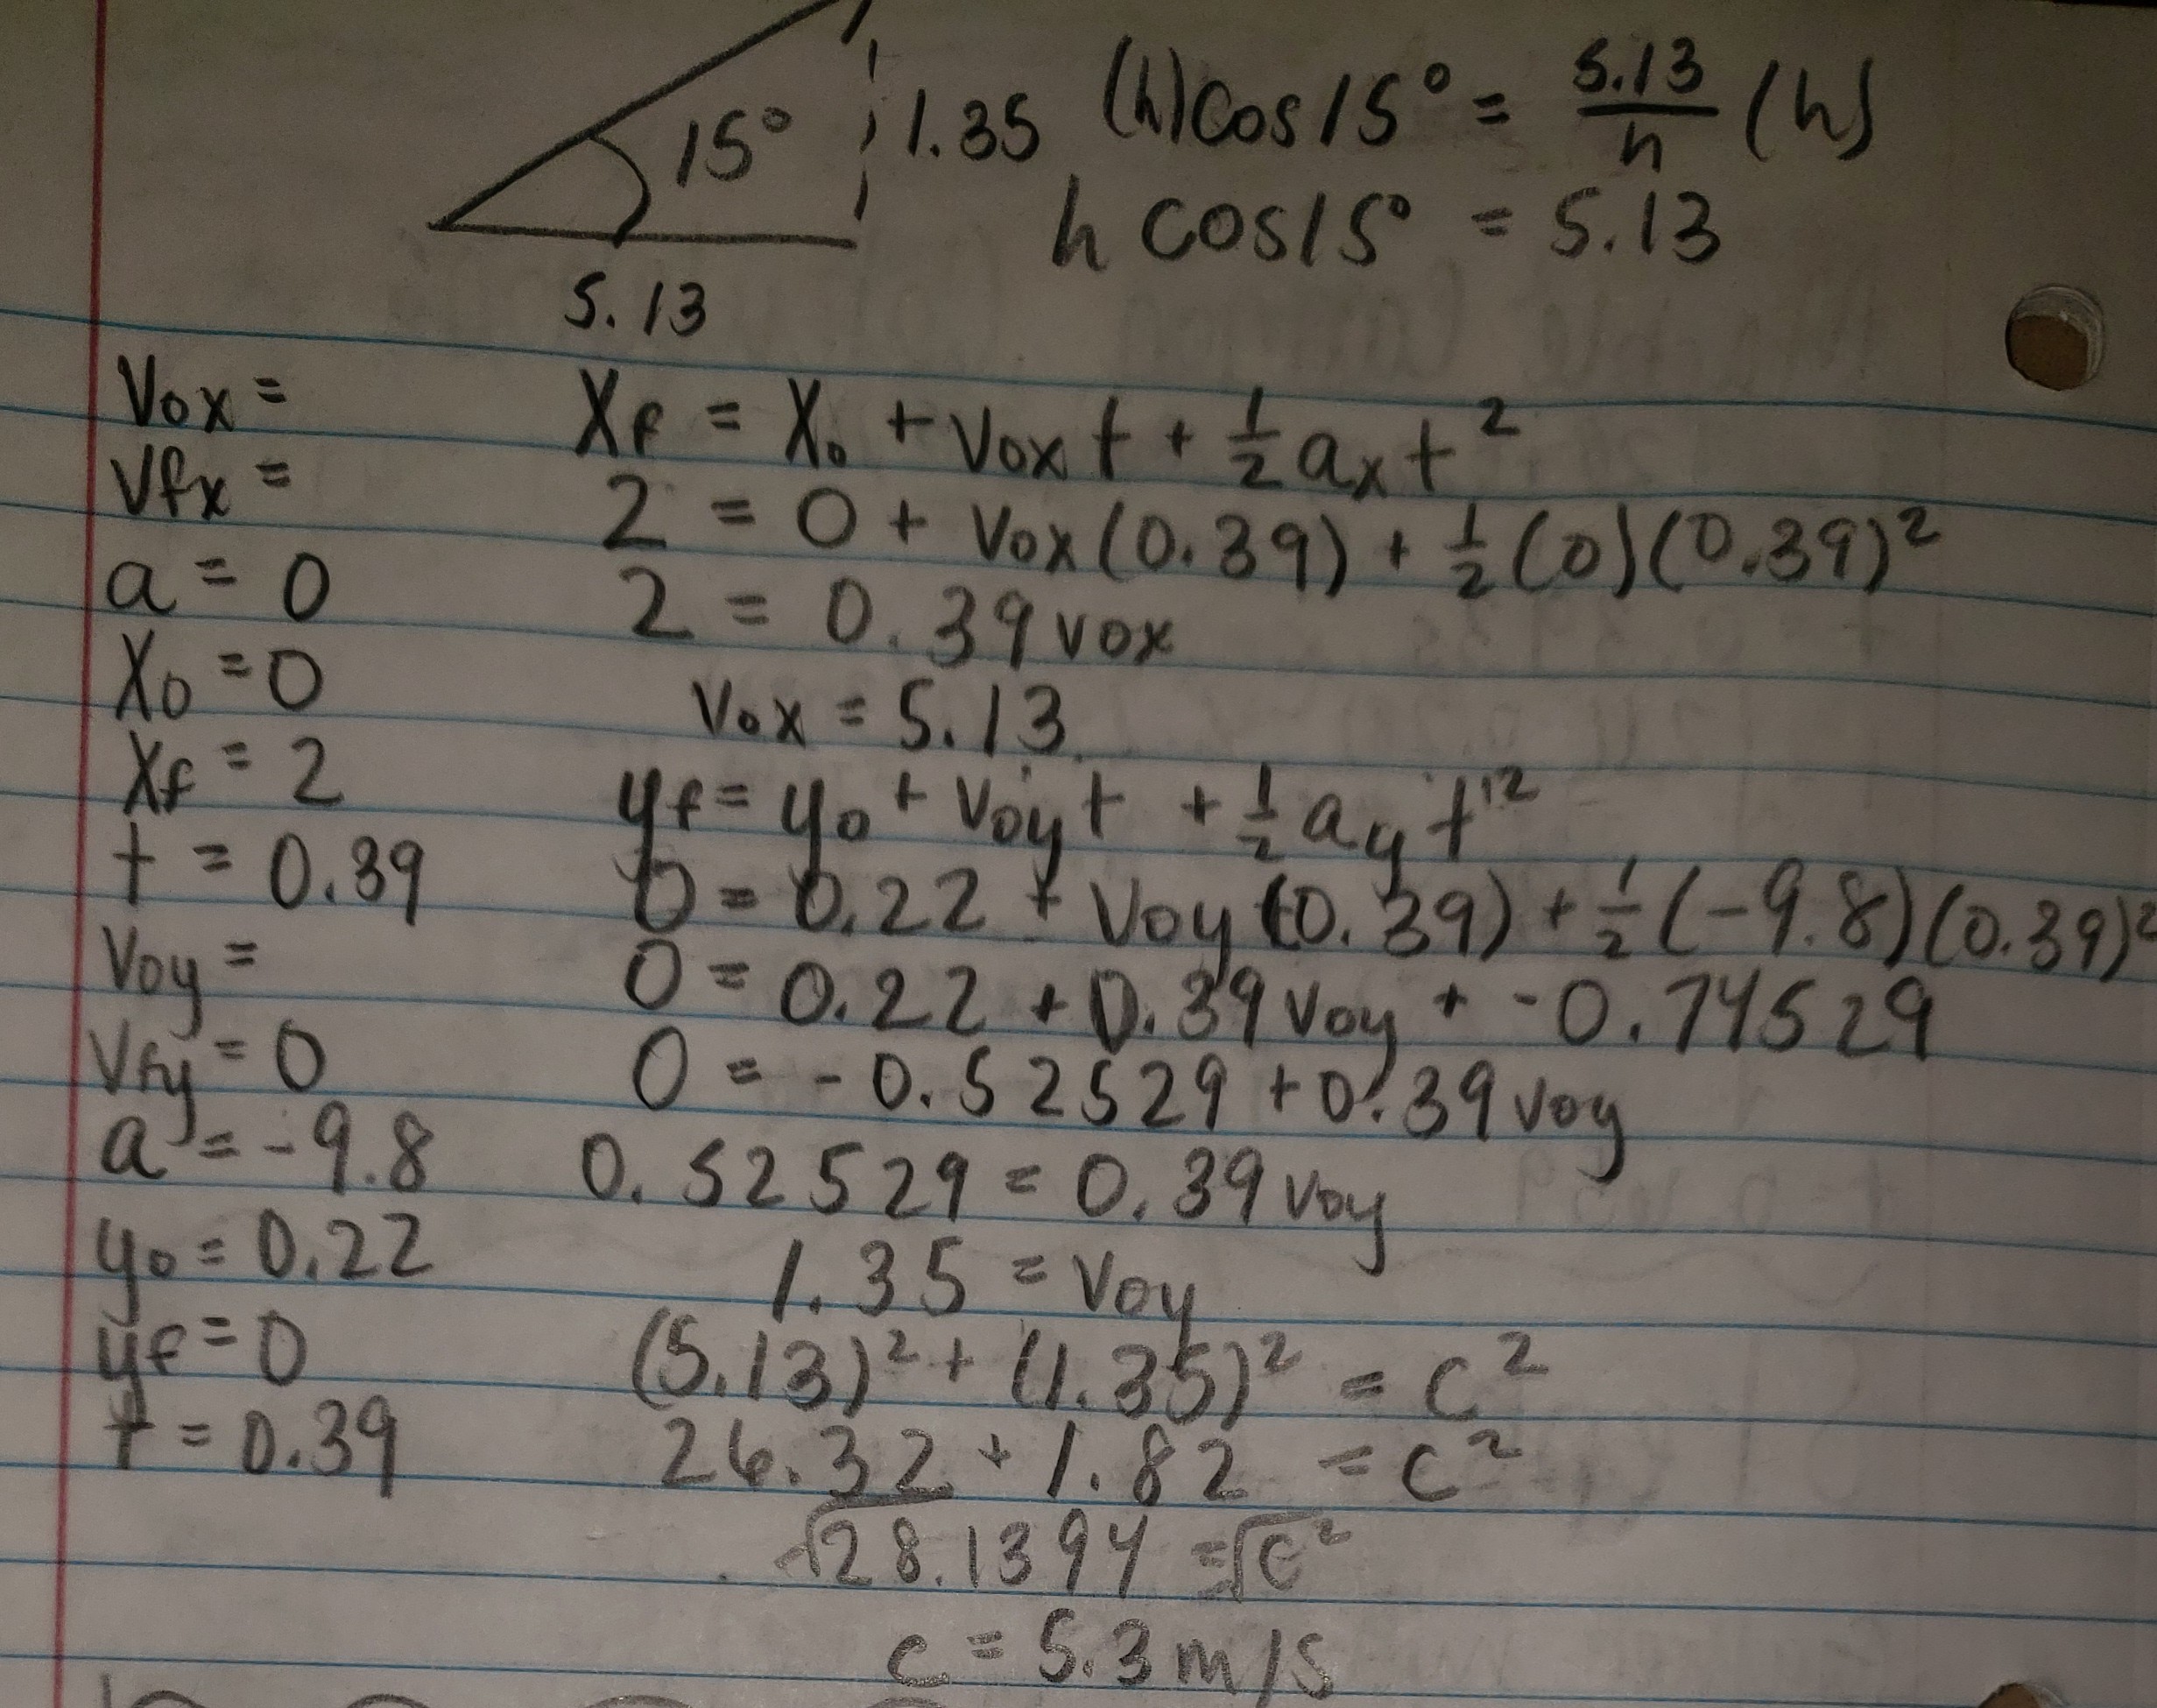 15° 1.35 (h)cos15° = 5.13/h (h)
h cos15° = 5.13
5.13
Vox =
Vfx =
a = 0
X0 = 0
Xf = 2
t = 0.39
Voy =
Vfy = 0
a = -9.8
y0 = 0.22
yf = 0
t = 0.39
Xf = X0 + Vox t + 1/2 ax t²
2 = 0 + Vox(0.39) + 1/2(0)(0.39)²
2 = 0.39 vox
Vox = 5.13
yf = y0 + Voy t + 1/2 ay t²
0 = 0.22 + Voy(0.39) + 1/2(-9.8)(0.39)²
0 = 0.22 + 0.39 Voy + -0.74529
0 = -0.52529 + 0.39 Voy
0.52529 = 0.39 Voy
1.35 = Voy
(5.13)² + (1.35)² = c²
26.32 + 1.82 = c²
√28.1394 = √c²
c = 5.3 m/s